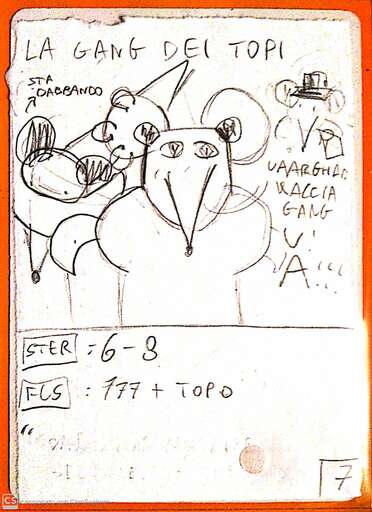 LA GANG DEI TOPI
STA
DABBANDO
UAARGHAR
KACCIA
GANG
U!
A!!!
STER : 6-8
FCS : 777 + TOPO
"
7
CS